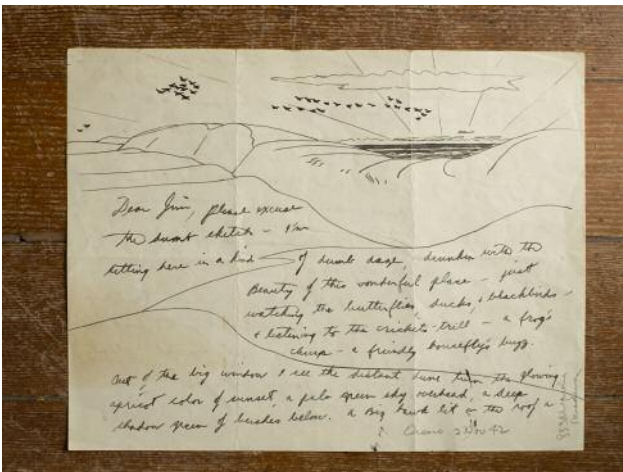 Dear Jim, please excuse
the dumb sketch – I'm
sitting here in a kind of dumb daze, drunken with the
Beauty of this wonderful place – just
watching the butterflies, ducks, & blackbirds –
& listening to the crickets trill – a frog's
chirp – a friendly housefly's buzz.
Out of the big window I see the distant dune turn the glowing
apricot color of sunset, a pale green sky overhead, a deep
shadow green of bushes below. A Big hawk lit on the roof a
2 Nov 42